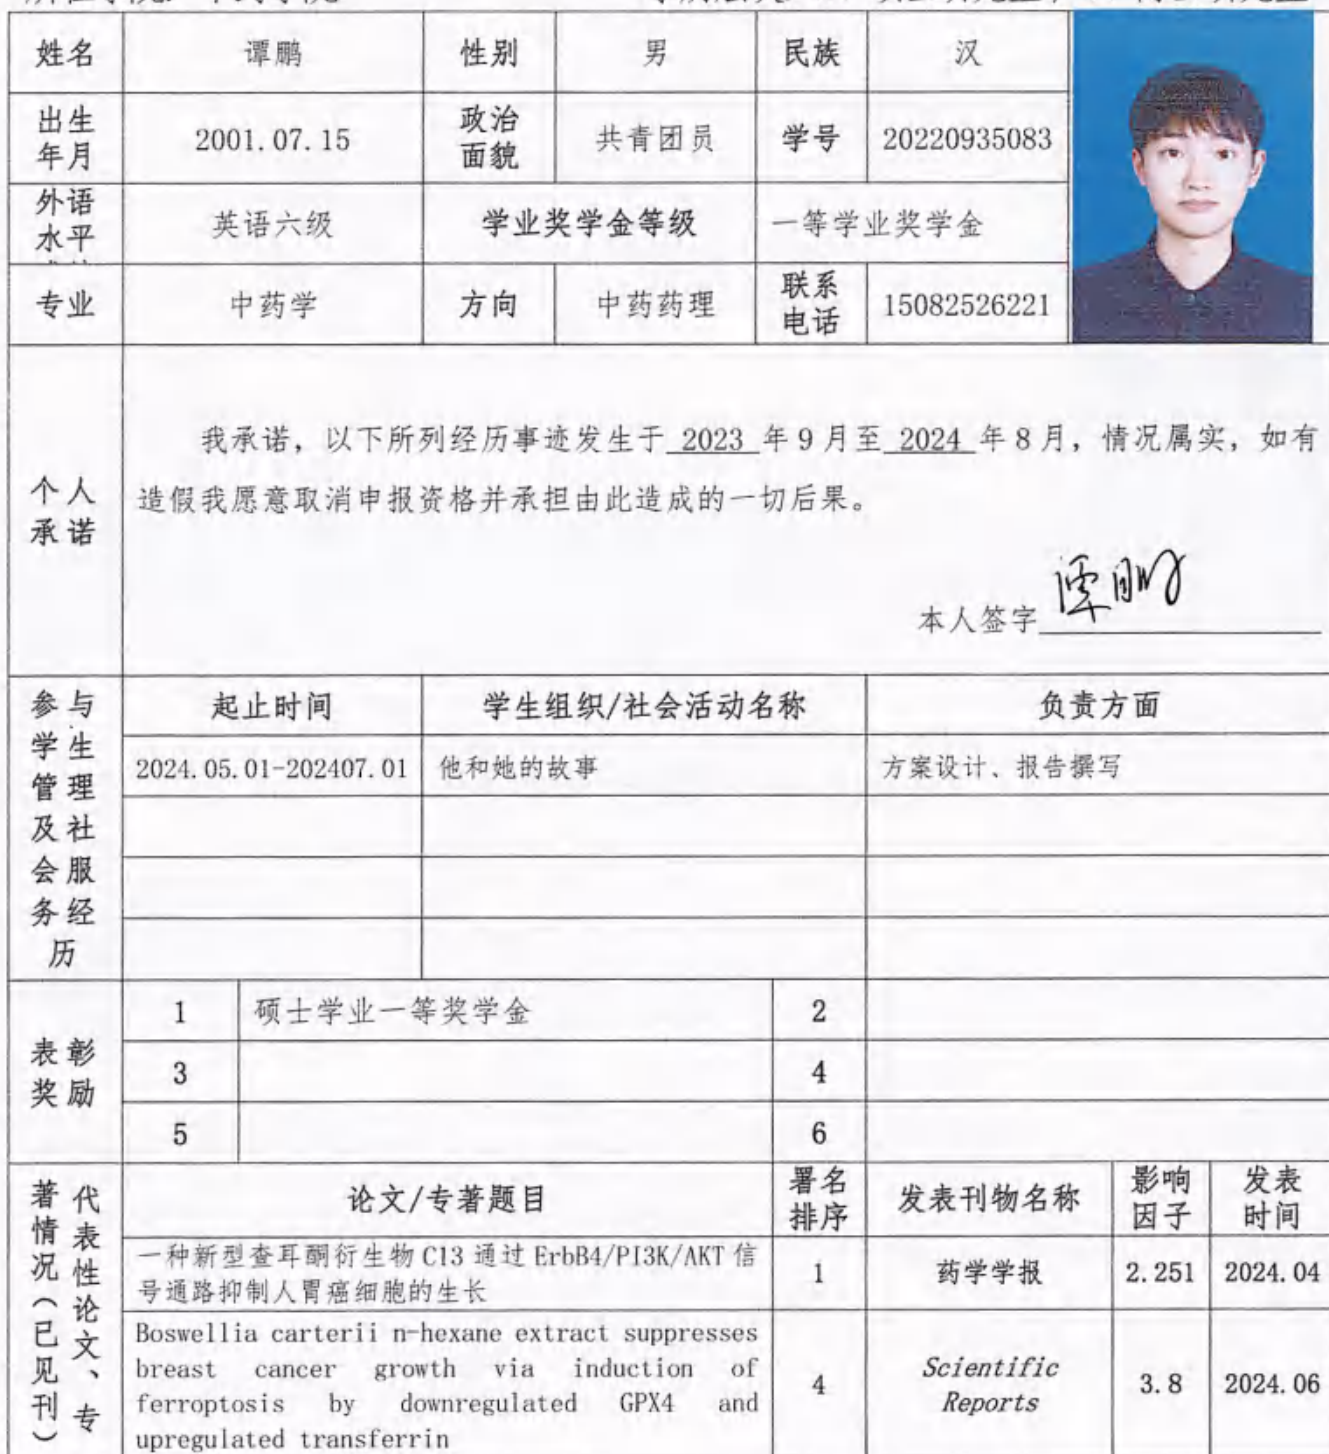 姓名 谭鹏 性别 男 民族 汉
出生年月 2001.07.15 政治面貌 共青团员 学号 20220935083
外语水平 英语六级 学业奖学金等级 一等学业奖学金
专业 中药学 方向 中药药理 联系电话 15082526221
个人承诺
我承诺，以下所列经历事迹发生于 2023 年9月至 2024 年8月，情况属实，如有
造假我愿意取消申报资格并承担由此造成的一切后果。
本人签字 谭鹏
参与学生管理及社会服务经历
起止时间 学生组织/社会活动名称 负责方面
2024.05.01-202407.01 他和她的故事 方案设计、报告撰写
表彰奖励
1 硕士学业一等奖学金 2
3 4
5 6
代表性论文、专著情况（已见刊）
论文/专著题目 署名排序 发表刊物名称 影响因子 发表时间
一种新型查耳酮衍生物 C13 通过 ErbB4/PI3K/AKT 信
号通路抑制人胃癌细胞的生长 1 药学学报 2.251 2024.04
Boswellia carterii n-hexane extract suppresses
breast cancer growth via induction of
ferroptosis by downregulated GPX4 and
upregulated transferrin 4 Scientific Reports 3.8 2024.06